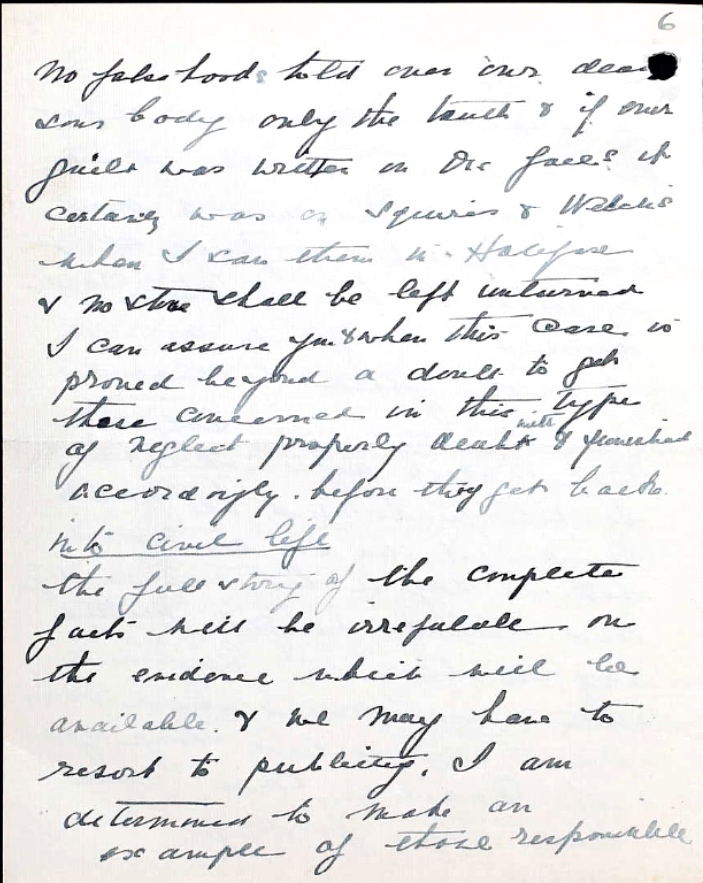 6
No falsehoods told over our dear
sons body only the truth & if ever
guilt was written on the faces it
certainly was on Squires & Welch's
when I saw them in Halifax
& no stone shall be left unturned
I can assure you & when this case is
proved beyond a doubt to get
those concerned in this type
of neglect properly dealt with & punished
accordingly. before they get back
into civil life
the full story of the complete
facts will be irrefutable on
the evidence which will be
available. & we may have to
resort to publicity. I am
determined to make an
example of those responsible